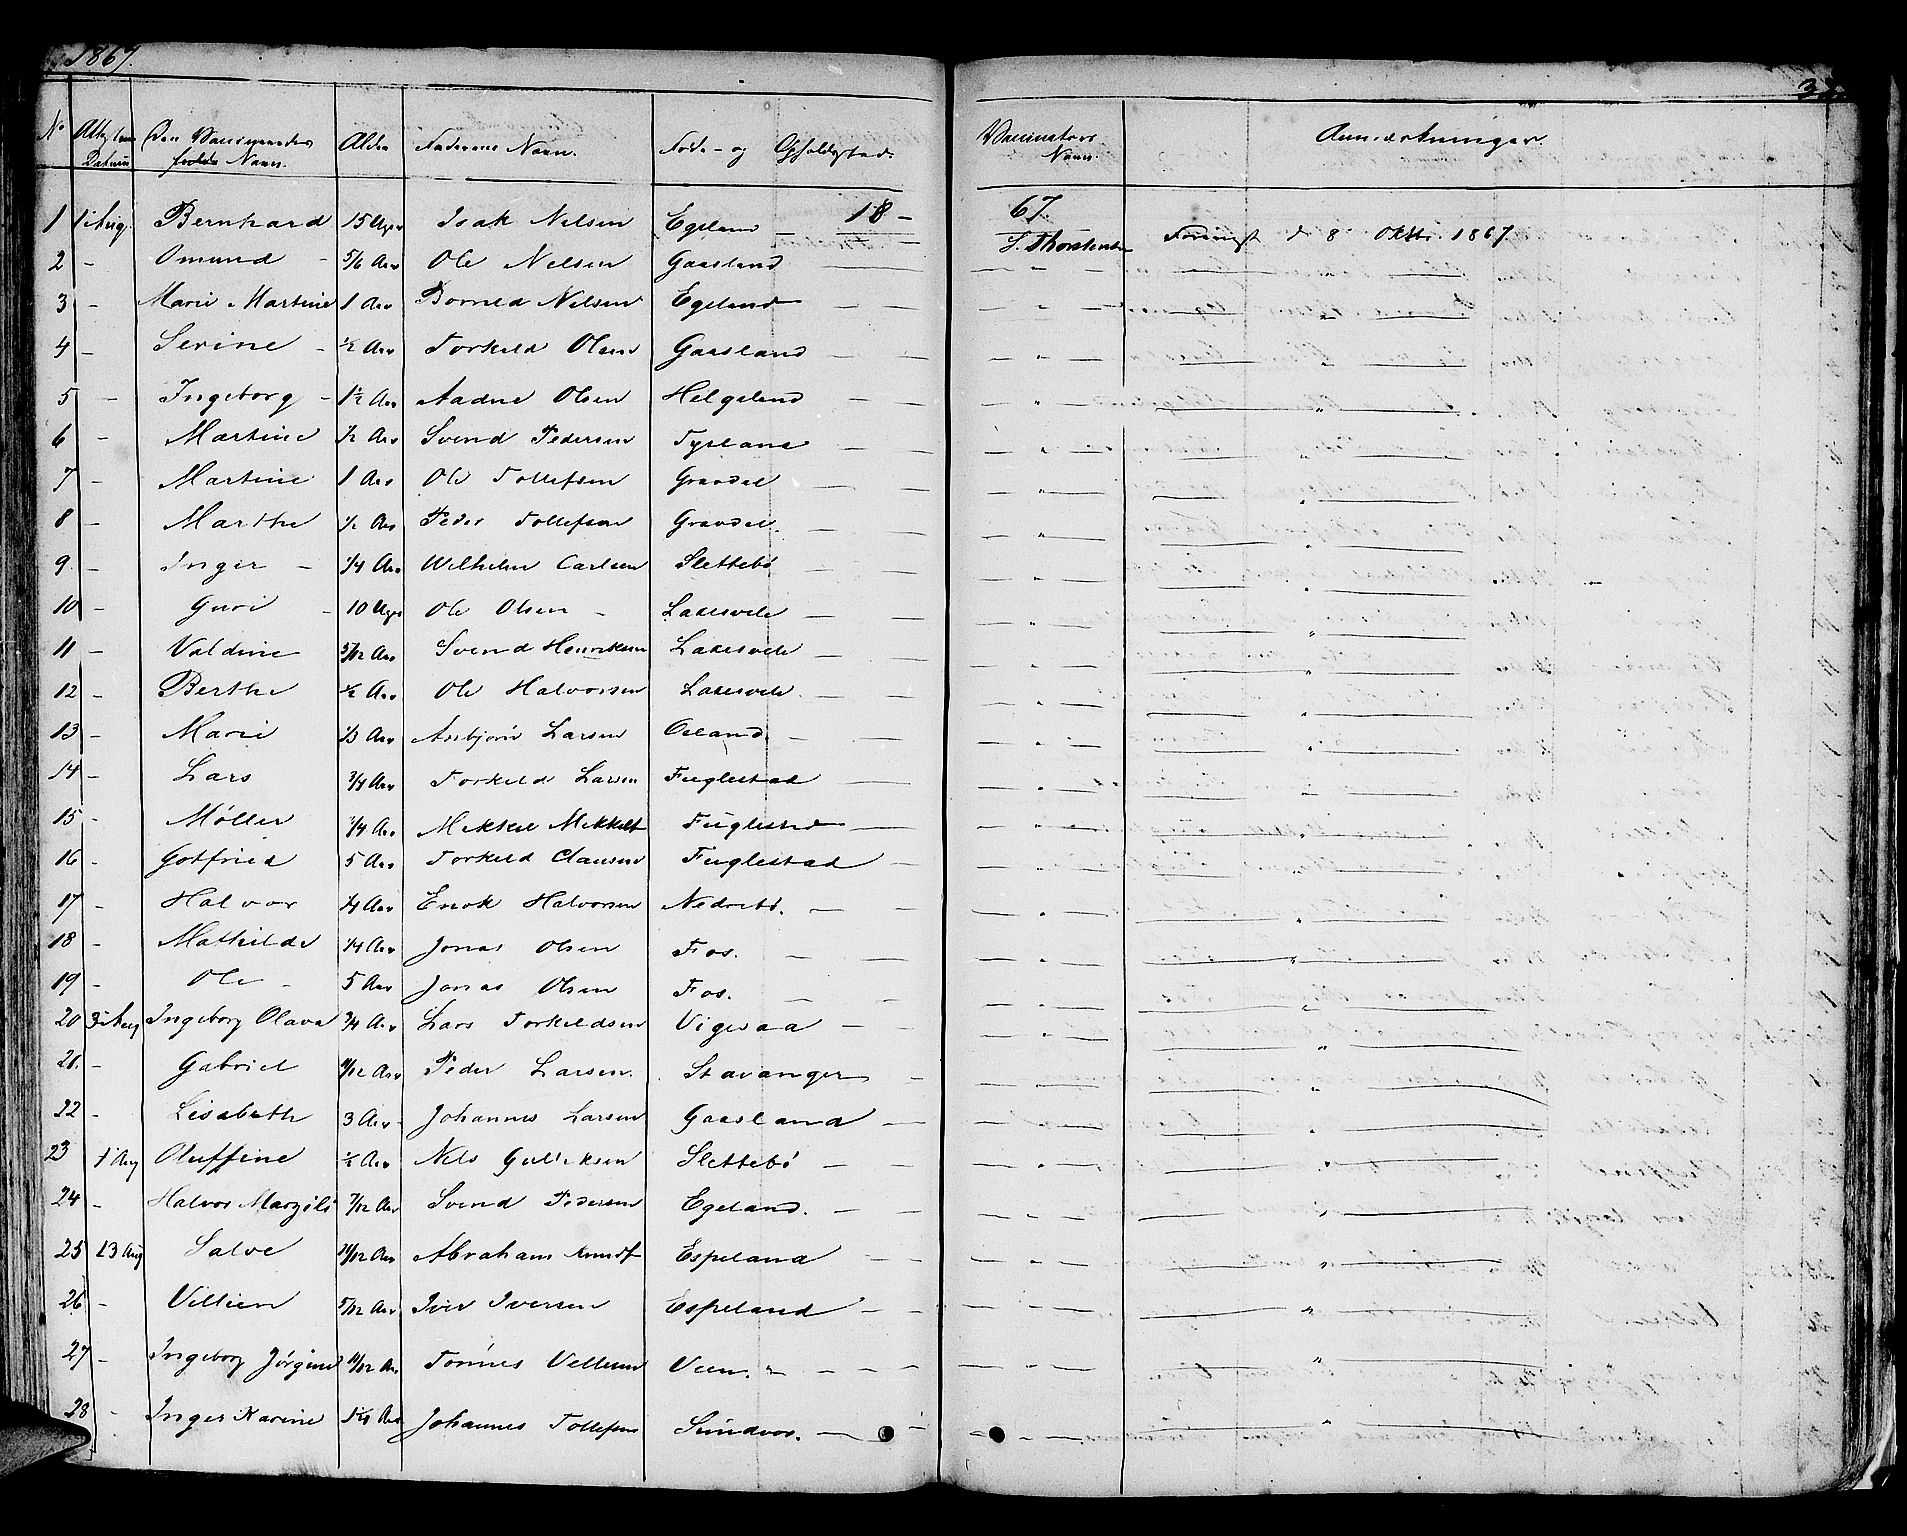 1867.
No Datum Den Vaccineredes Navn. Alder Faderens Navn. Føde- og Opholdssted. Vaccinators Navn. Anmærkninger.
18 - 67.
1 1 Aug. Bernhard 15 Uger Isak Nelsen Egeland — S. Thorstensen d 8 Oktbr. 1867
2 - Omund - 5/6 Aar Ole Nelsen Gaasland — — " — — " —
3 - Marie Martine 1 Aar Nelsen Egeland — — " — — " —
4 - Serine - 1/2 Aar Torkeld Olsen Gaasland — — " — — " —
5 - Ingeborg - 1 1/2 Aar Aadne Olsen Helgeland — — " — — " —
6 - Martine 1/2 Aar Svend Pedersen Tysland — — " — — " —
7 - Martine 1 Aar Ole Tollefsen Gravdal — — " — — " —
8 - Marthe 1/2 Aar Peder Tollefsen Gravdal. — — " — — " —
9. - Inger - 1/4 Aar Wilhelm Carlsen Slettebø — — " — — " —
10 - Guri - 10 Uger Ole Olsen - Ladesvele — — " — — " —
11 - Valdine 5/12 Aar Svend Henriksen Ladesvele — — " — — " —
12 - Berthe 1/2 Aar Ole Halvorsen Ladesvele. — — " — — " —
13 - Marie 1/3 Aar Asbjørn Larsen — — " — — " —
14 - Lars 3/4 Aar Torkeld Larsen Fuglestad — — " — — " —
15 - Møller 3/4 Aar Mekkel Mekkels Fuglestad — — " — — " —
16 - Gotfried 5 Aar Torkeld Clausen Fuglestad — — " — — " —
17 - Halvor 1/4 Aar Enok Halvorsen Nedrebø. — — " — — " —
18 - Mathilde 1/4 Aar Jonas Olsen Fos. — — " — — " —
19 - Ole - 5 Aar Jonas Olsen Fos. — — " — — " —
20 3 Aug Ingeborg Olava 3/4 Aar Lars Torkeldsen Vigesaa — — " — — " —
21. - Gabriel /12 Aar Peder Larsen. Stavanger — — " — — " —
22 - Lisabeth 3 Aar Johannes Larsen Gaasland — — " — — " —
23 1 Aug Oluffine 1/2 Aar Nels Gulleksen Slettebø — — " — — " —
24 - Halvor Marzeli 7/12 Aar Svend Pedersen Egeland. — — " — — " —
25 13 Aug Salve 10/12 Aar Abraham Knuds Espeland — — " — — " —
26 - Villien 5/12 Aar Iver Iversen Espeland — — " — — " —
27 - Ingeborg Jørgine /12 Aar Tønnes Veen. — — " — — " —
28 - Inger Karine 1 1/4 Aar Johannes Tollefsen Sundvor. — — " — — " —